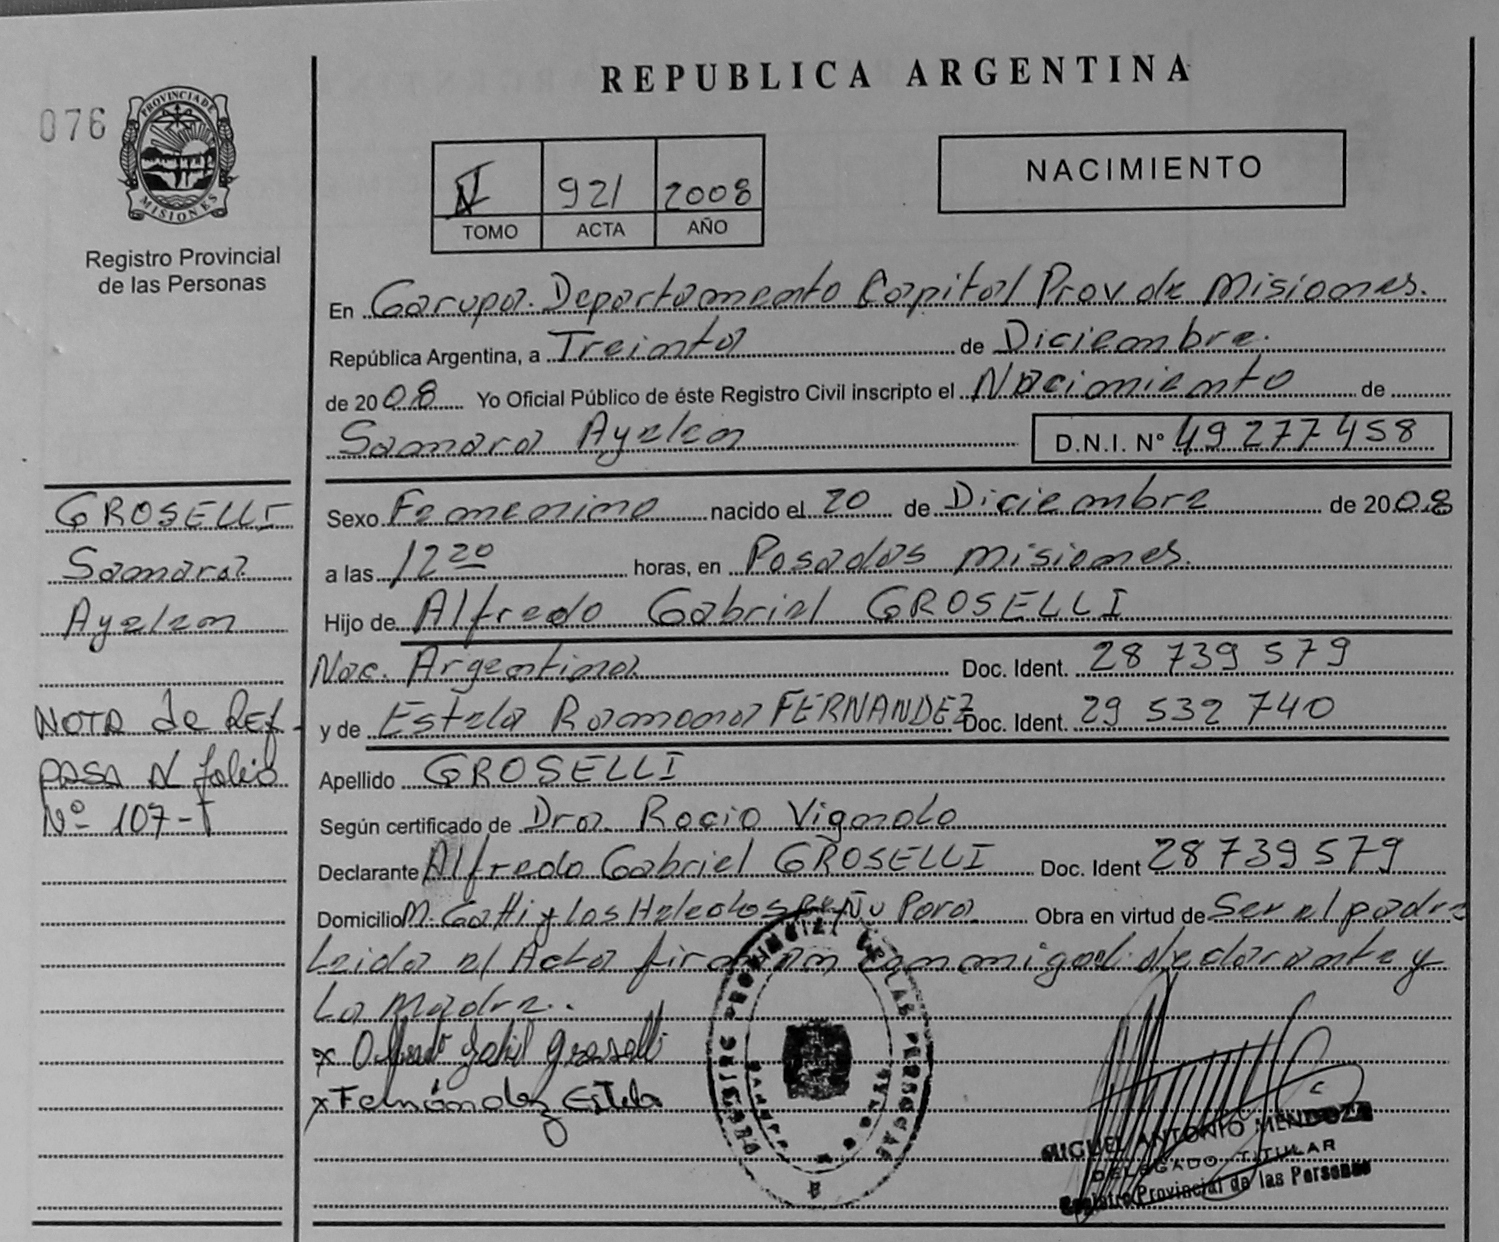 REPUBLICA ARGENTINA
076
PROVINCIA DE
MISIONES
Registro Provincial
de las Personas
921 2008
TOMO ACTA AÑO
NACIMIENTO
En Garupa. Departamento Capital Prov. de Misiones.
República Argentina, a Treinta de Diciembre.
de 2008 Yo Oficial Público de éste Registro Civil inscripto el Nacimiento de
Samara Ayelen D.N.I. Nº 49277458
GROSELLI
Samara
Ayelen
NOTA de REF
PASA folio
Nº 107-T
Sexo Femenino nacido el 20 de Diciembre de 2008
a las 12 20 horas, en Posadas Misiones.
Hijo de Alfredo Gabriel GROSELLI
Nac. Argentina Doc. Ident. 28 739 579
y de Estela Ramona FERNANDEZ Doc. Ident. 29 532 740
Apellido GROSELLI
Según certificado de Dra. Rocio Vignolo
Declarante Alfredo Gabriel GROSELLI Doc. Ident 28739579
Domicilio M. Gatti y Los Helechos Ñu Pora Obra en virtud de Ser el padre
Leida el Acta firman conmigo el declarante y
La Madre..
x Alfredo Gabriel Groselli
x Fernández Estela
MIGUEL ANTONIO MENDOZA
DELEGADO TITULAR
Registro Provincial de las Personas